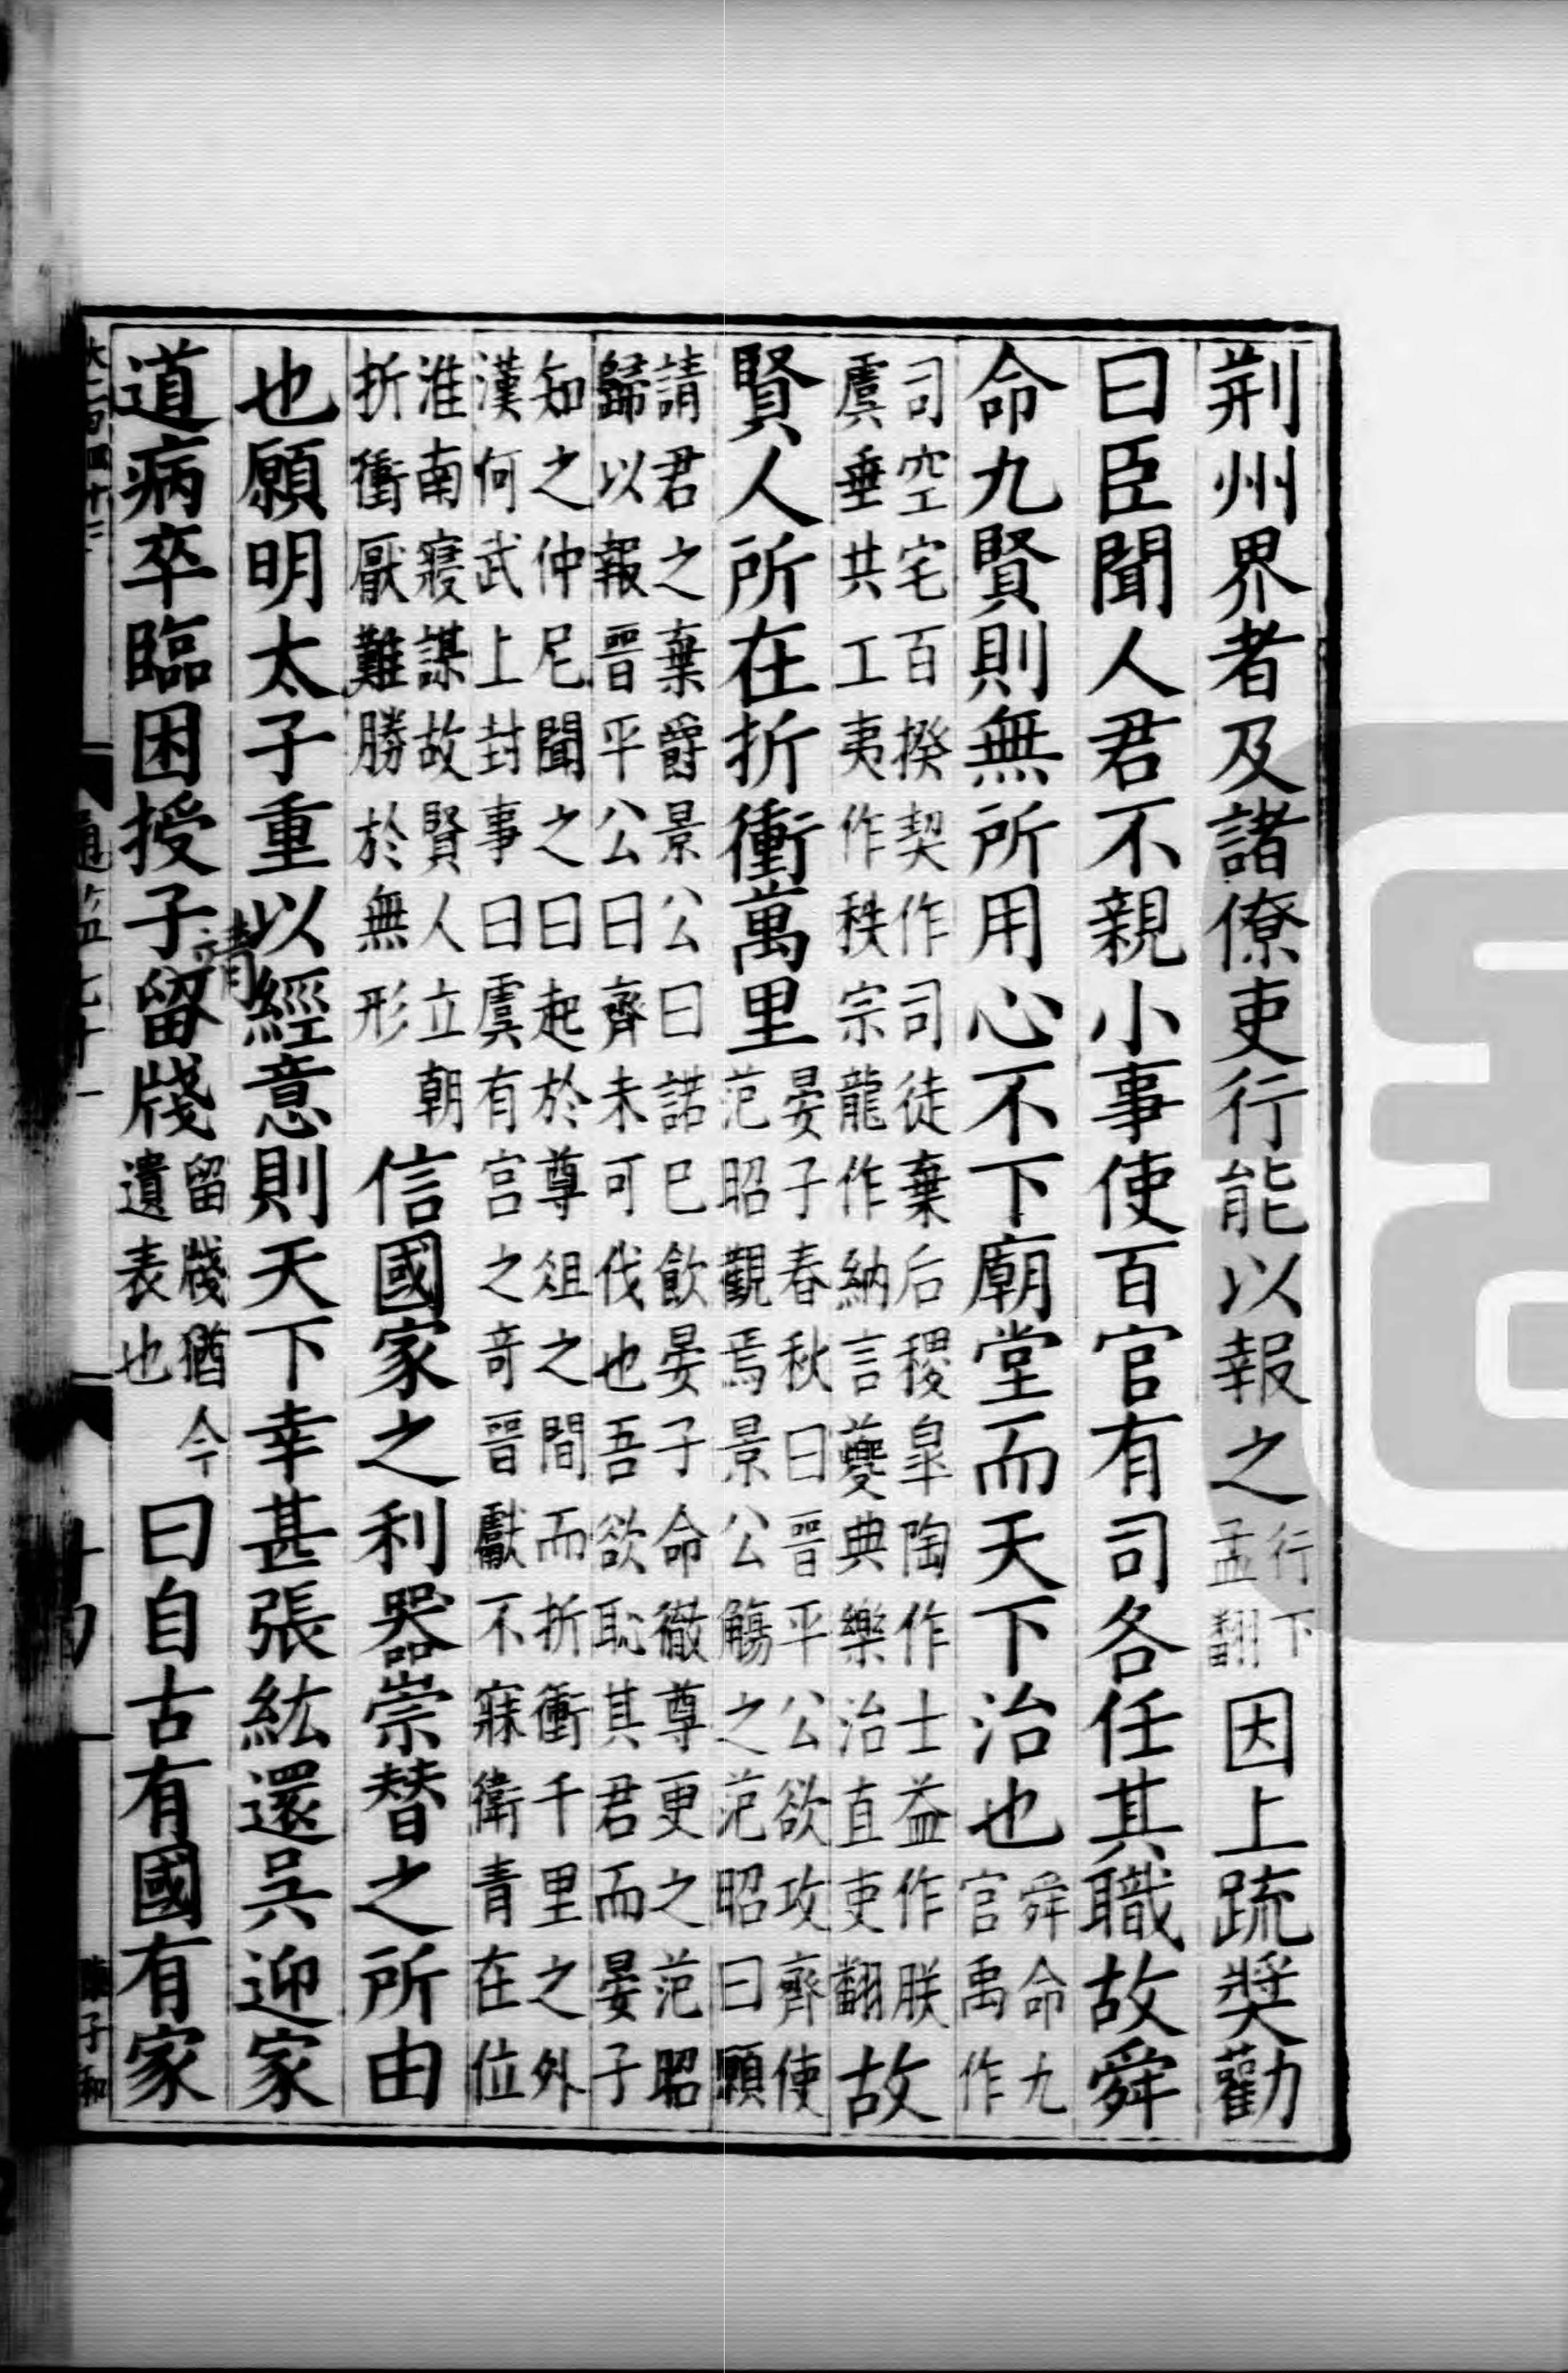 荊州界者及諸僚吏行能以報之行下孟翻因上䟽奬勸
曰臣聞人君不親小事使百官有司各任其職故舜
命九賢則無所用心不下廟堂而天下治也舜命九官禹作
司空宅百揆契作司徒棄后稷皐陶作士益作朕虞垂共工夷作秩宗龍作納言夔典樂治直吏翻故
賢人所在折衝萬里晏子春秋曰晉平公欲攻齊使范昭觀焉景公觴之范昭曰願
請君之棄爵景公曰諾巳飲晏子命徹尊更之范昭歸以報晉平公曰齊未可伐也吾欲恥其君而晏子
知之仲尼聞之曰起於尊俎之間而折衝千里之外漢何武上封事曰虞有宮之竒晉獻不寐衛青在位
淮南寢謀故賢人立朝折衝厭難勝於無形信國家之利器崇替之所由
也願明太子重以經意則天下幸甚張紘還吳迎家
道病卒臨困授子靖留牋留牋猶今遺表也曰自古有國有家